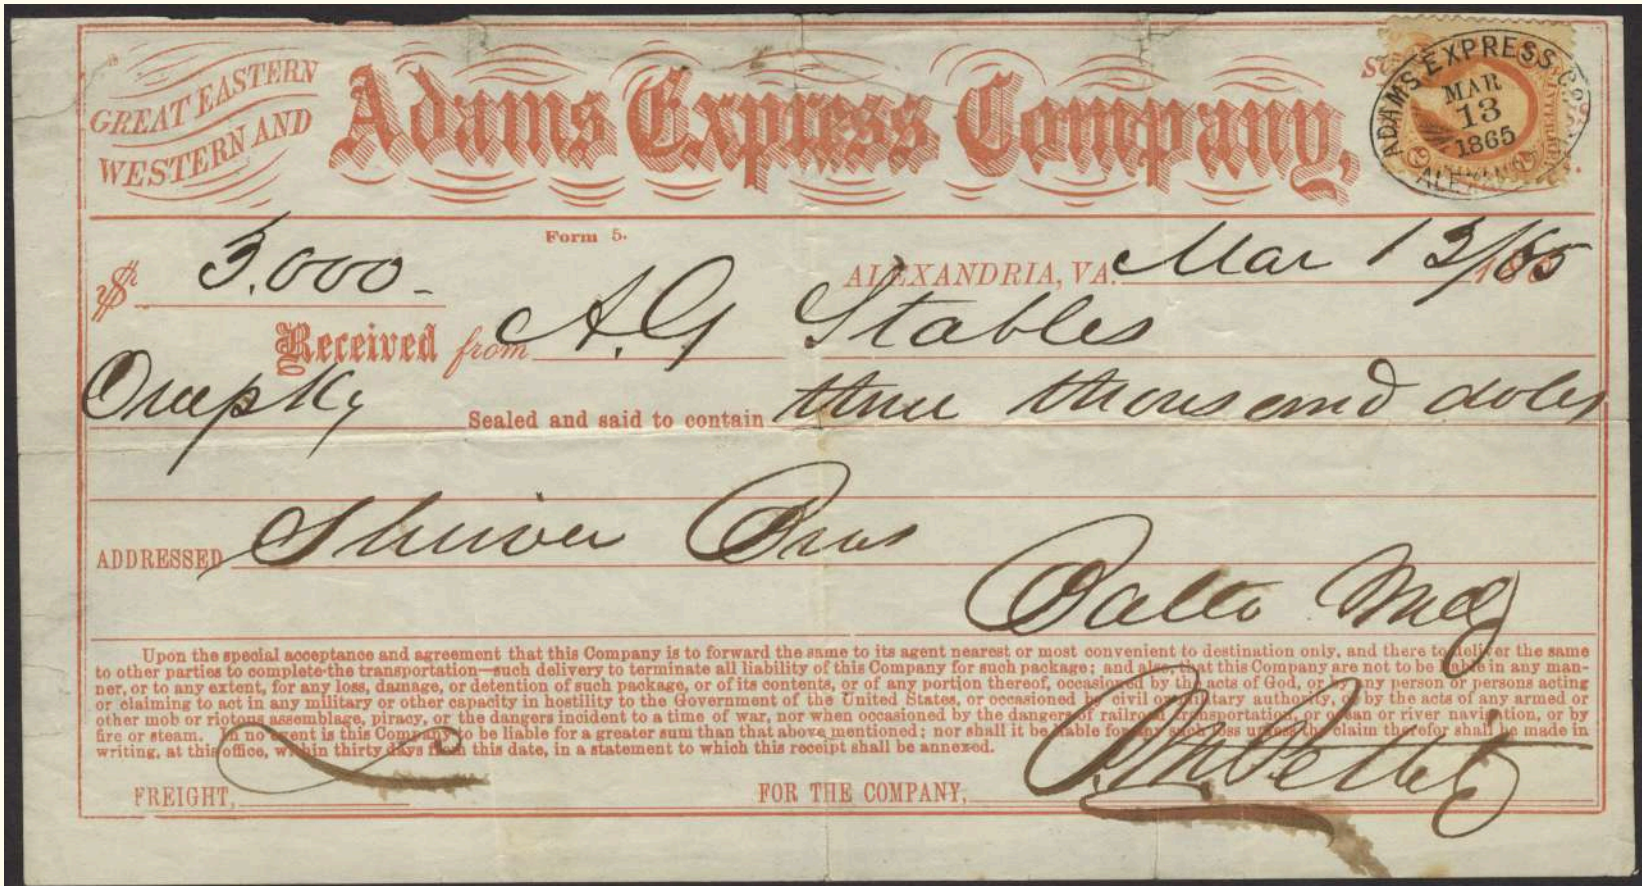 GREAT EASTERN
WESTERN AND
Adams Express Company,
ADAMS EXPRESS CO.
MAR
13
1865
Form 5.
$ 3.000-
ALEXANDRIA, VA. Mar 13/65
Received from A.G Stables
One pkg Sealed and said to contain three thousand dolls
ADDRESSED Shriver Bros
Balto Md
Upon the special acceptance and agreement that this Company is to forward the same to its agent nearest or most convenient to destination only, and there to deliver the same
to other parties to complete the transportation—such delivery to terminate all liability of this Company for such package; and also, that this Company are not to be liable in any man-
ner, or to any extent, for any loss, damage, or detention of such package, or of its contents, or of any portion thereof, occasioned by the acts of God, or by any person or persons acting
or claiming to act in any military or other capacity in hostility to the Government of the United States, or occasioned by civil or military authority, or by the acts of any armed or
other mob or riotous assemblage, piracy, or the dangers incident to a time of war, nor when occasioned by the dangers of railroad transportation, or ocean or river navigation, or by
fire or steam. In no event is this Company to be liable for a greater sum than that above mentioned; nor shall it be liable for any such loss unless the claim therefor shall be made in
writing, at this office, within thirty days from this date, in a statement to which this receipt shall be annexed.
FREIGHT,
FOR THE COMPANY,